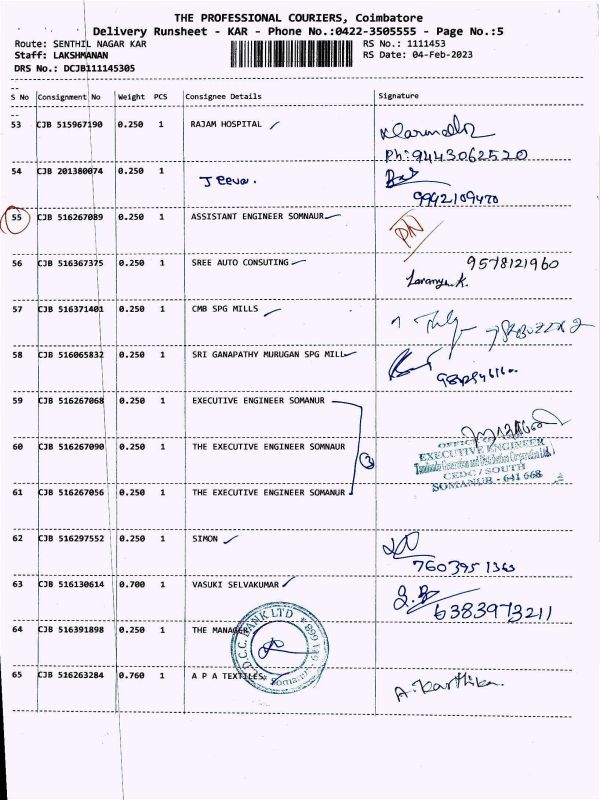 THE PROFESSIONAL COURIERS, Coimbatore
Delivery Runsheet - KAR - Phone No.:0422-3505555 - Page No.:5
Route: SENTHIL NAGAR KAR RS No.: 1111453
Staff: LAKSHMANAN RS Date: 04-Feb-2023
DRS No.: DCJB111145305
--
S No Consignment No Weight PCS Consignee Details Signature
--
53 CJB 515967190 0.250 1 RAJAM HOSPITAL
Ph: 9443062520
54 CJB 201380074 0.250 1 Jeeva.
9942109470
55 CJB 516267089 0.250 1 ASSISTANT ENGINEER SOMNAUR
56 CJB 516367375 0.250 1 SREE AUTO CONSUTING 9578121960
Laranya.K.
57 CJB 516371401 0.250 1 CMB SPG MILLS
58 CJB 516065832 0.250 1 SRI GANAPATHY MURUGAN SPG MILL
59 CJB 516267068 0.250 1 EXECUTIVE ENGINEER SOMANUR
60 CJB 516267090 0.250 1 THE EXECUTIVE ENGINEER SOMNAUR
3
EXECUTIVE ENGINEER
Tamilnadu Generation and Distribution Corporation Ltd.
CEDC / SOUTH
SOMANUR - 641 668
61 CJB 516267056 0.250 1 THE EXECUTIVE ENGINEER SOMANUR
62 CJB 516297552 0.250 1 SIMON
7603951363
63 CJB 516130614 0.700 1 VASUKI SELVAKUMAR
6383973211
64 CJB 516391898 0.250 1 THE MANAGER
D.C.C. BANK LTD
65 CJB 516263284 0.760 1 A P A TEXTILES
A. Karthika